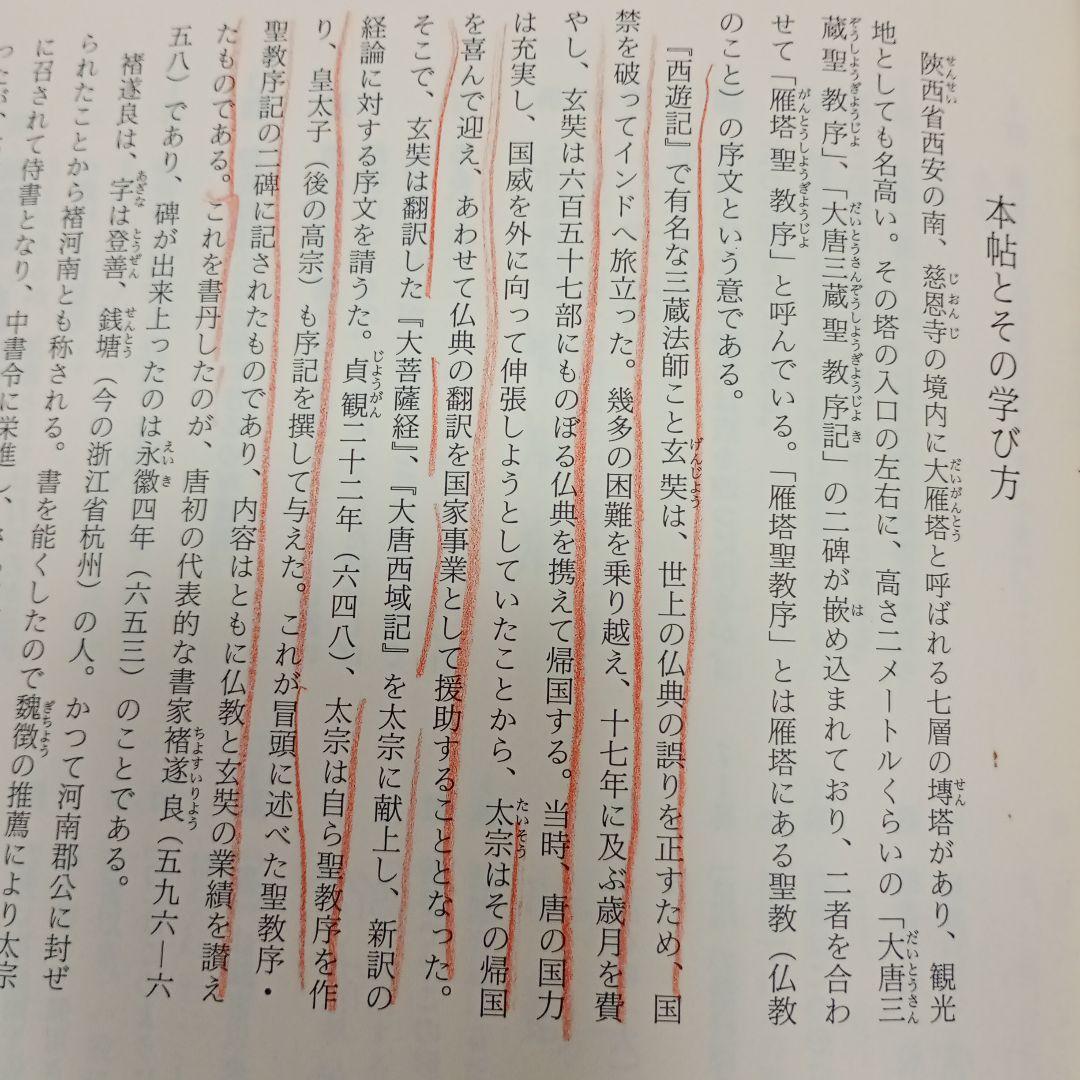 本帖とその学び方
陝西省西安の南、慈恩寺の境内に大雁塔と呼ばれる七層の塼塔があり、観光
地としても名高い。その塔の入口の左右に、高さ二メートルくらいの「大唐三
蔵聖教序」、「大唐三蔵聖教序記」の二碑が嵌め込まれており、二者を合わ
せて「雁塔聖教序」と呼んでいる。「雁塔聖教序」とは雁塔にある聖教（仏教
のこと）の序文という意である。
『西遊記』で有名な三蔵法師こと玄奘は、世上の仏典の誤りを正すため、国
禁を破ってインドへ旅立った。幾多の困難を乗り越え、十七年に及ぶ歳月を費
やし、玄奘は六百五十七部にものぼる仏典を携えて帰国する。当時、唐の国力
は充実し、国威を外に向って伸張しようとしていたことから、太宗はその帰国
を喜んで迎え、あわせて仏典の翻訳を国家事業として援助することとなった。
そこで、玄奘は翻訳した『大菩薩経』、『大唐西域記』を太宗に献上し、新訳の
経論に対する序文を請うた。貞観二十二年（六四八）、太宗は自ら聖教序を作
り、皇太子（後の高宗）も序記を撰して与えた。これが冒頭に述べた聖教序・
聖教序記の二碑に記されたものであり、内容はともに仏教と玄奘の業績を讃え
たものである。これを書丹したのが、唐初の代表的な書家褚遂良（五九六―六
五八）であり、碑が出来上ったのは永徽四年（六五三）のことである。
褚遂良は、字は登善、銭塘（今の浙江省杭州）の人。かつて河南郡公に封ぜ
られたことから褚河南とも称される。書を能くしたので魏徴の推薦により太宗
に召されて侍書となり、中書令に栄進し、